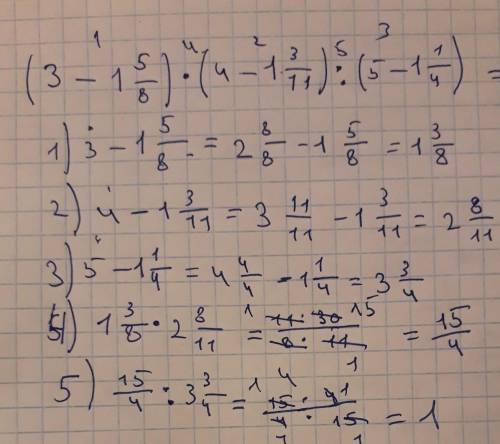 (3 - 1 5/8) · (4 - 1 3/11) : (5 - 1 1/4) =
1) 3 - 1 5/8 = 2 8/8 - 1 5/8 = 1 3/8
2) 4 - 1 3/11 = 3 11/11 - 1 3/11 = 2 8/11
3) 5 - 1 1/4 = 4 4/4 - 1 1/4 = 3 3/4
4) 1 3/8 · 2 8/11 = 11 · 30 / 8 · 11 = 15/4
5) 15/4 : 3 3/4 = 15 · 4 / 4 · 15 = 1